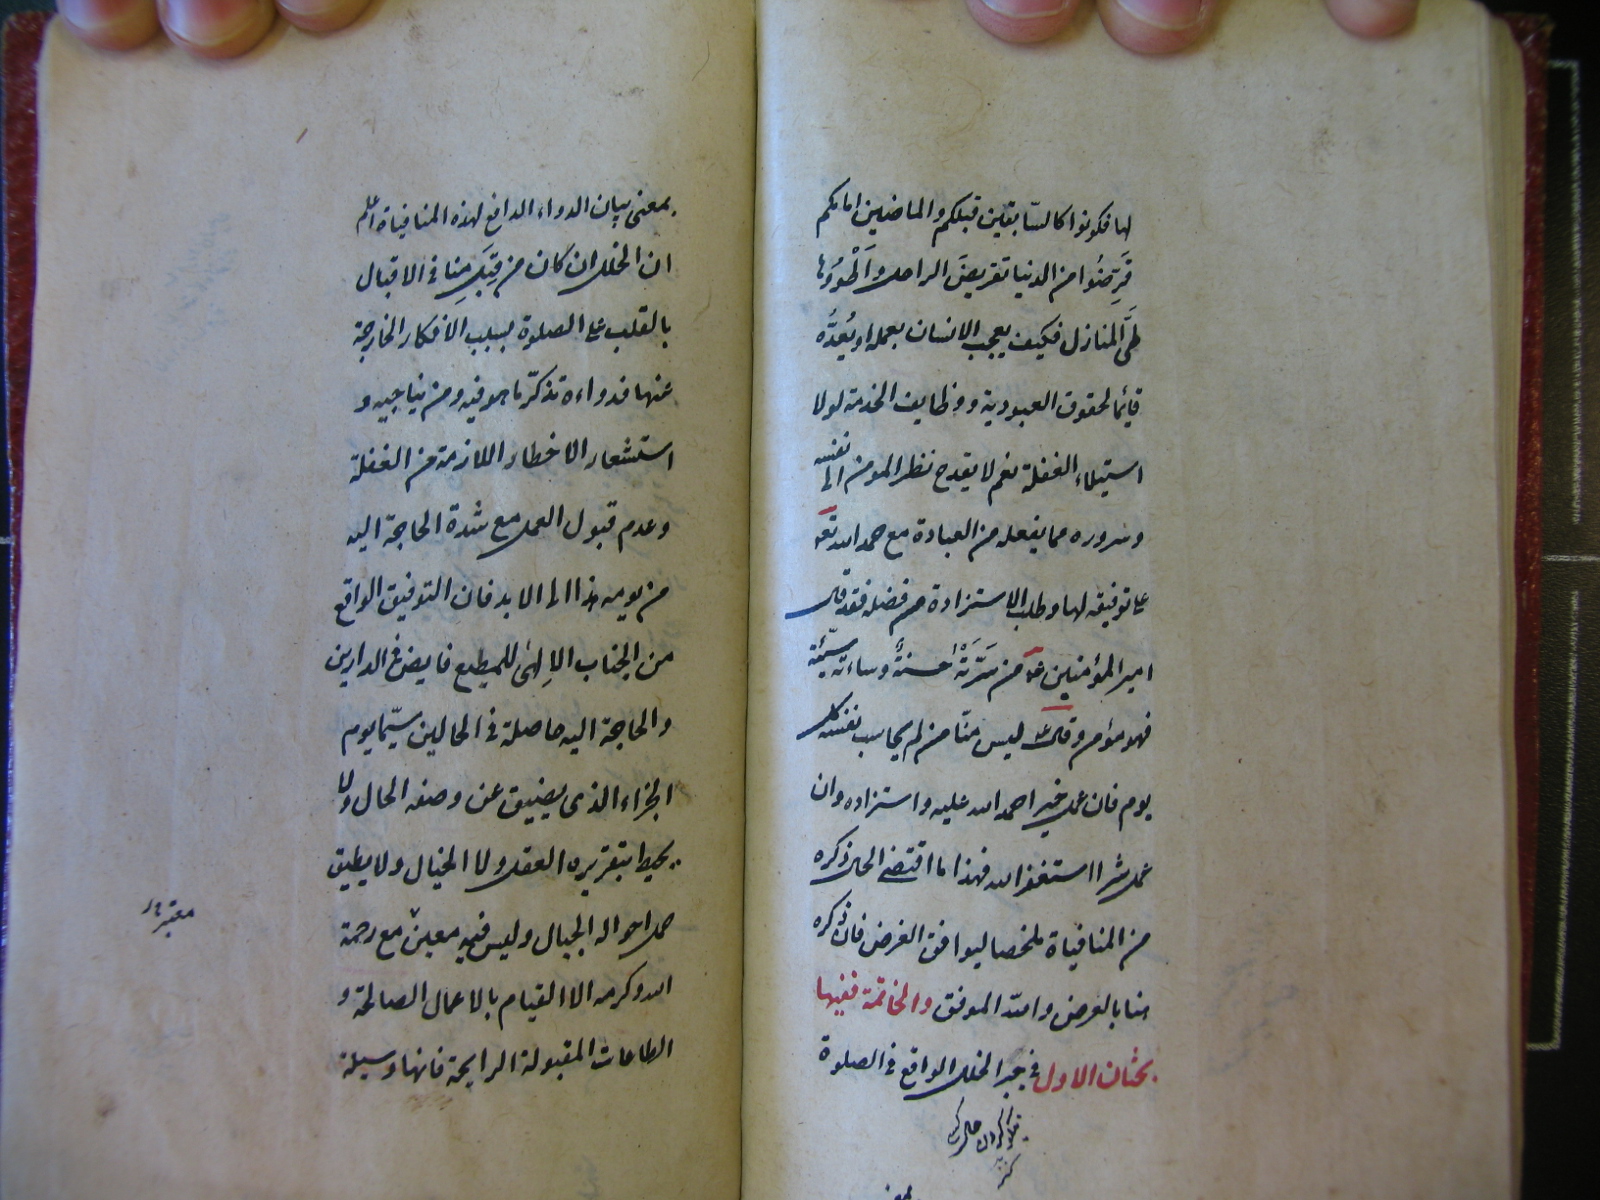 لها فكونوا كالسّابقين قبلكم والماضين امامكم
قَرِّضُوا من الدنيا تقريضَ الراحل واَطْوُوها
طَىَّ المنازل فكيف يعجب الانسان بعمله او يُعِدُّه
قائما لحقوق العبودية ووظايف الخدمة لولا
استيلاء الغفلة نعم لا يقدح نظر المومن الى نفسه
وسروره مما يفعله من العبادة مع حمد الله تعه
على توفيقه لها وطلب الاستزادة من فضله فقد قال
امير المؤمنين ع من سَرَّتْهُ حسنةٌ وساءته سيّئة
فهو مؤمن وقال ع ليس منّا من لم يحاسب نفسه كل
يوم فان عمل خيرا حمد الله عليه واستزاده وان
عمل شرا استغفر الله فهذا ما اقتضى الحال ذكره
من المنافياة ملخصا ليوافق الغرض فان ذكره
هنا بالعرض والله الموفق والخاتمة ففيها
بحثان الاول فى جبر الخلل الواقع فى الصلوة
بمعنى بيان الدواء الدافع لهذه المنافياة اعلم
ان الخلل ان كان من قِبَل منافى الاقبال
بالقلب على الصلوة بسبب الافكار الخارجة
عنها فدواءه تذكّر ما هو فيه ومن يناجيه و
استشعار الاخطار اللازمة من الغفلة
وعدم قبول العمل مع شدة الحاجة اليه
من يومه هذا الى الابد فان التوفيق الواقع
من الجناب الاِلهى للمطيع فايض فى الدارين
والحاجة اليه حاصلة فى الحالين سيّما يوم
الجزاء الذى يضيق عن وصفه الحال ولا
يحيط بتقريره العقل ولا الخيال ولا يطيق
حمل اهواله الجبال وليس فيه معين مع رحمة
الله وكرمه الا القيام بالاعمال الصالحة و
الطاعات المقبولة الرابحة فانها وسيلة